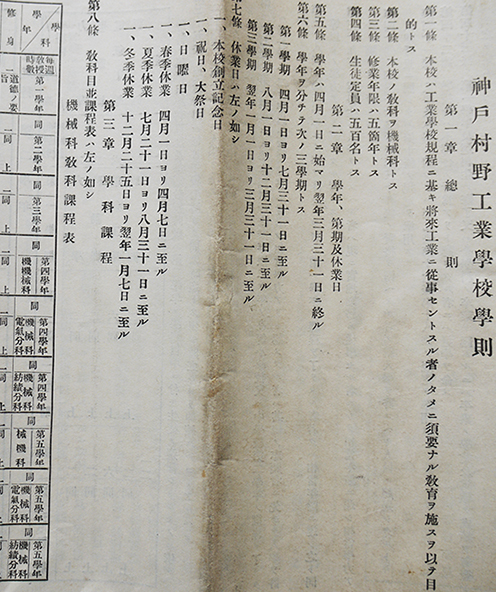 神戸村野工業學校學則
第一章 總則
第一條 本校ハ工業學校規程ニ基キ將來工業ニ從事セントスル者ノタメニ須要ナル敎育ヲ施スヲ以テ目
的トス
第二條 本校ノ敎科ヲ機械科トス
第三條 修業年限ハ五箇年トス
第四條 生徒定員ハ五百名トス
第二章 學年、第期及休業日
第五條 學年ハ四月一日ニ始マリ翌年三月三十一日ニ終ル
第六條 學年ヲ分チテ次ノ三學期トス
第一學期 四月一日ヨリ七月三十一日ニ至ル
第二學期 八月一日ヨリ十二月三十一日ニ至ル
第三學期 翌年一月一日ヨリ三月三十一日ニ至ル
七條 休業日ハ左ノ如シ
一、本校創立記念日
一、祝日、大祭日
一、日曜日
一、春季休業 四月一日ヨリ四月七日ニ至ル
一、夏季休業 七月二十一日ヨリ八月三十一日ニ至ル
一、冬季休業 十二月二十五日ヨリ翌年一月七日ニ至ル
第三章 學科課程
第八條 敎科目並課程表ハ左ノ如シ
機械科敎科課程表
學科 學年 修身
每週敎授時數 一 同 同 同 同 同 同 同
第一學年 道德ノ要旨
第二學年 同上
第三學年 同上
第四學年 機械科 同上
第四學年 機械科 電氣分科 同上
第四學年 機械科 紡績分科 同上
第五學年 機械科 同上
第五學年 機械科 電氣分科 同上
第五學年 機械科 紡績分科 同上